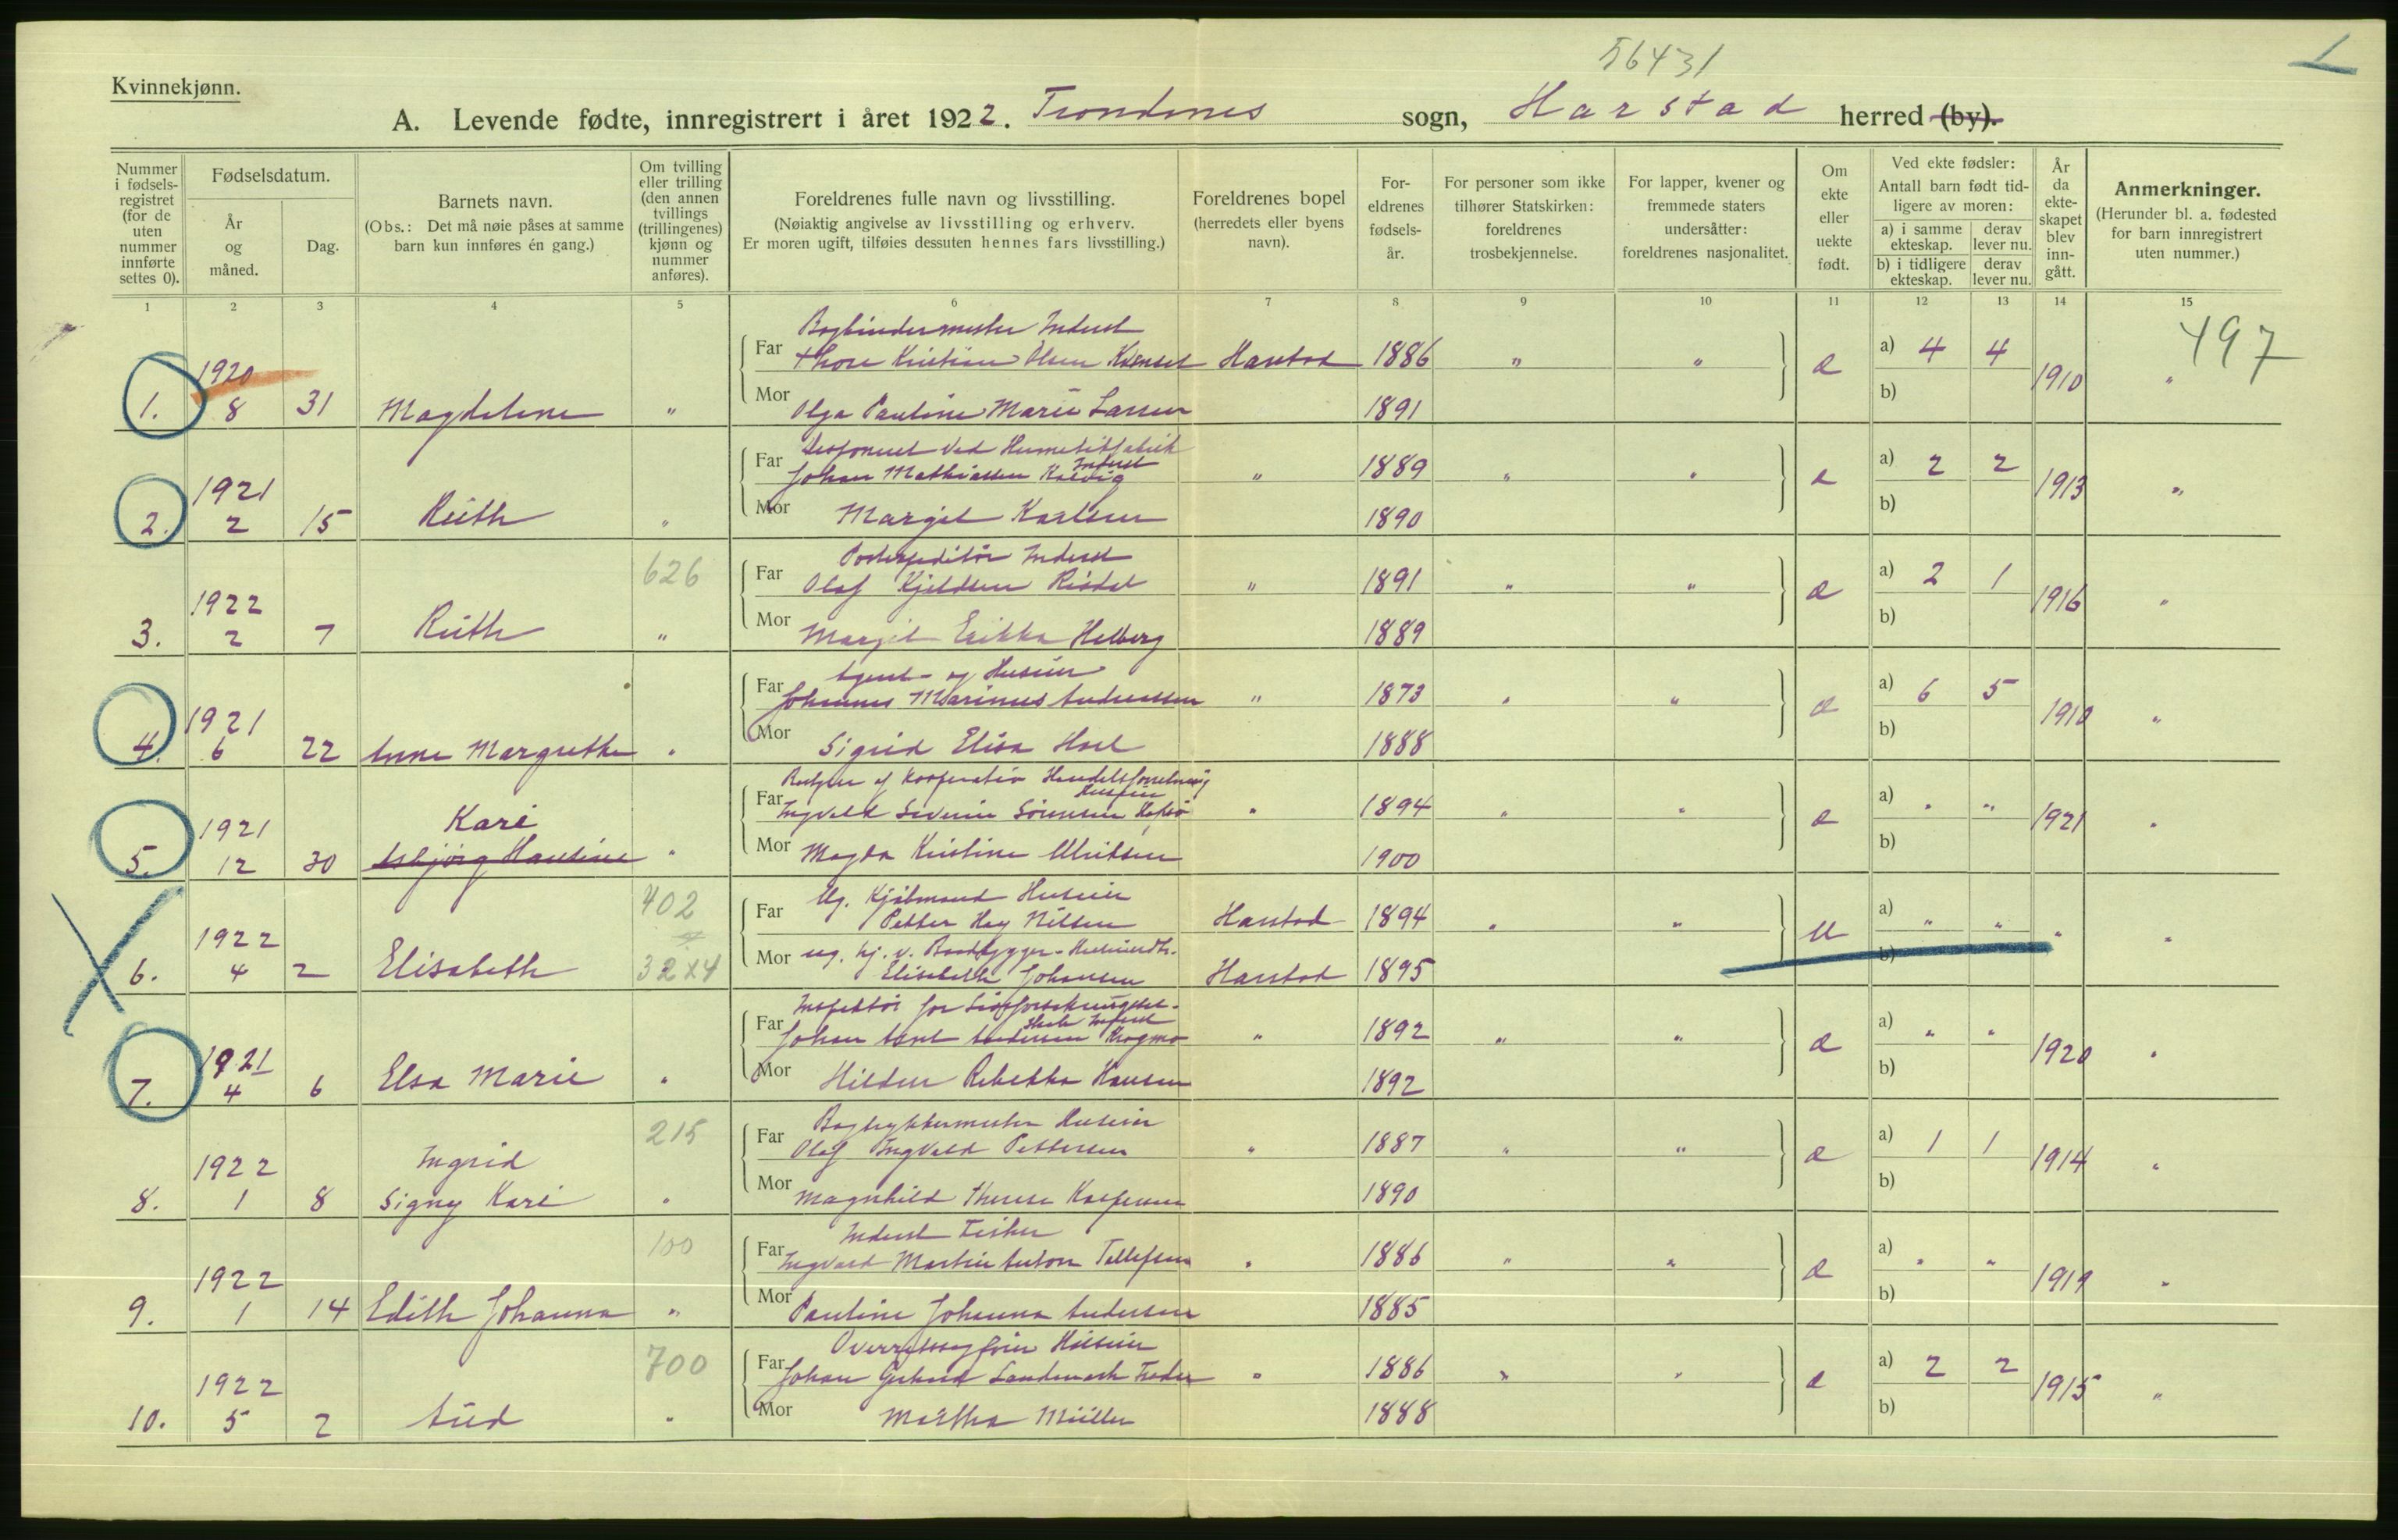 56431
1
Kvinnekjønn.
A. Levende fødte, innregistrert i året 1922. Trondenes sogn, Harstad herred (by).
Nummer i fødsels-registret (for de uten nummer innførte settes 0).
Fødselsdatum.
År og måned.
Dag.
Barnets navn.
(Obs.: Det må nøie påses at samme barn kun innføres én gang.)
Om tvilling eller trilling (den annen tvillings (trillingenes) kjønn og nummer anføres).
Foreldrenes fulle navn og livsstilling.
(Nøiaktig angivelse av livsstilling og erhverv.
Er moren ugift, tilføies dessuten hennes fars livsstilling.)
Foreldrenes bopel (herredets eller byens navn).
For-eldrenes fødsels-år.
For personer som ikke tilhører Statskirken: foreldrenes trosbekjennelse.
For lapper, kvener og fremmede staters undersåtter: foreldrenes nasjonalitet.
Om ekte eller uekte født.
Ved ekte fødsler:
Antall barn født tid-ligere av moren:
a) i samme ekteskap.
derav lever nu.
b) i tidligere ekteskap.
derav lever nu.
År da ekte-skapet blev inn-gått.
Anmerkninger.
(Herunder bl. a. fødested for barn innregistrert uten nummer.)
1 2 3 4 5 6 7 8 9 10 11 12 13 14 15
497
Bogbindermester Inderst
1920 Far Thore Kristian Olsen Harstad 1886 " " a) 4 4
1. 8 31 Magdelene " Mor Olga Pauline Marie Larsen 1891 e b) 1910 "
Disponent ved Hermetikfabrik
Inderst
1921 Far Johan Mathiassen Kalvig " 1889 " " a) 2 2
2. 2 15 Ruth " Mor Margit Karlsen 1890 e b) 1913 "
626 Postexpeditør Inderst
1922 Far Olaf Kjeldsen " 1891 " " a) 2 1
3. 2 7 Ruth " Mor Margit Erikka Helberg 1889 e b) 1916 "
Agent og Huseier
1921 Far Johannes Marinus Andreassen " 1873 " " a) 6 5
4. 6 22 Anne Margrethe " Mor Sigrid Elisa Hoel 1888 e b) 1910 "
Bestyrer af Kooperativ Handelsforretning
Huseier
1921 Kari Far Ingvald Severin Sørensen " 1894 " " a) " "
5. 12 30 Asbjørg Hansine " Mor Magda Kristine Ulriksen 1900 e b) 1921 "
402 Ug. Kjøbmand Huseier
1922 Far Petter Hey Nilsen Harstad 1894 " " a) " "
Mor ug. hj. v. Baadbygger-
6. 4 2 Elisabeth 32x4 Elisabeth Johansen Harstad 1895 u b) " "
Inspektør for Sjø
1921 Far Johan Arnt Andersen Krogmo " 1892 " " a) " "
7. 4 6 Elsa Marie " Mor Hildur Rebekka Hansen 1892 e b) 1920 "
215 Bogtrykkermester Huseier
1922 Ingrid Far Olaf Ingvald Pettersen " 1887 " " a) 1 1
8. 1 8 Signy Kari " Mor Magnhild Therese Kaspersen 1890 e b) 1914 "
100 Inderst Fisker
1922 Far Ingvard Martin Anton Tellefsen " 1886 " " a) " "
9. 1 14 Edith Johanna " Mor Pauline Johanna Andersen 1885 e b) 1919 "
700 Overretssagfører Huseier
1922 Far Johan Gerhard Landmark " 1886 " " a) 2 2
10. 5 2 Aud " Mor Martha Müller 1888 e b) 1915 "